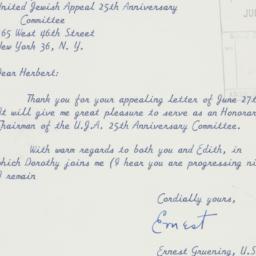 United Jewish Appeal 25th Anniversary
Committee
165 West 46th Street
New York 36, N. Y.
JU
Dear Herbert:
Thank you for your appealing letter of June 27th
It will give me great pleasure to serve as an Honorar
Chairman of the U.J.A. 25th Anniversary Committee.
With warm regards to both you and Edith, in
which Dorothy joins me (I hear you are progressing ni
I remain
Cordially yours,
Ernest
Ernest Gruening, U.S